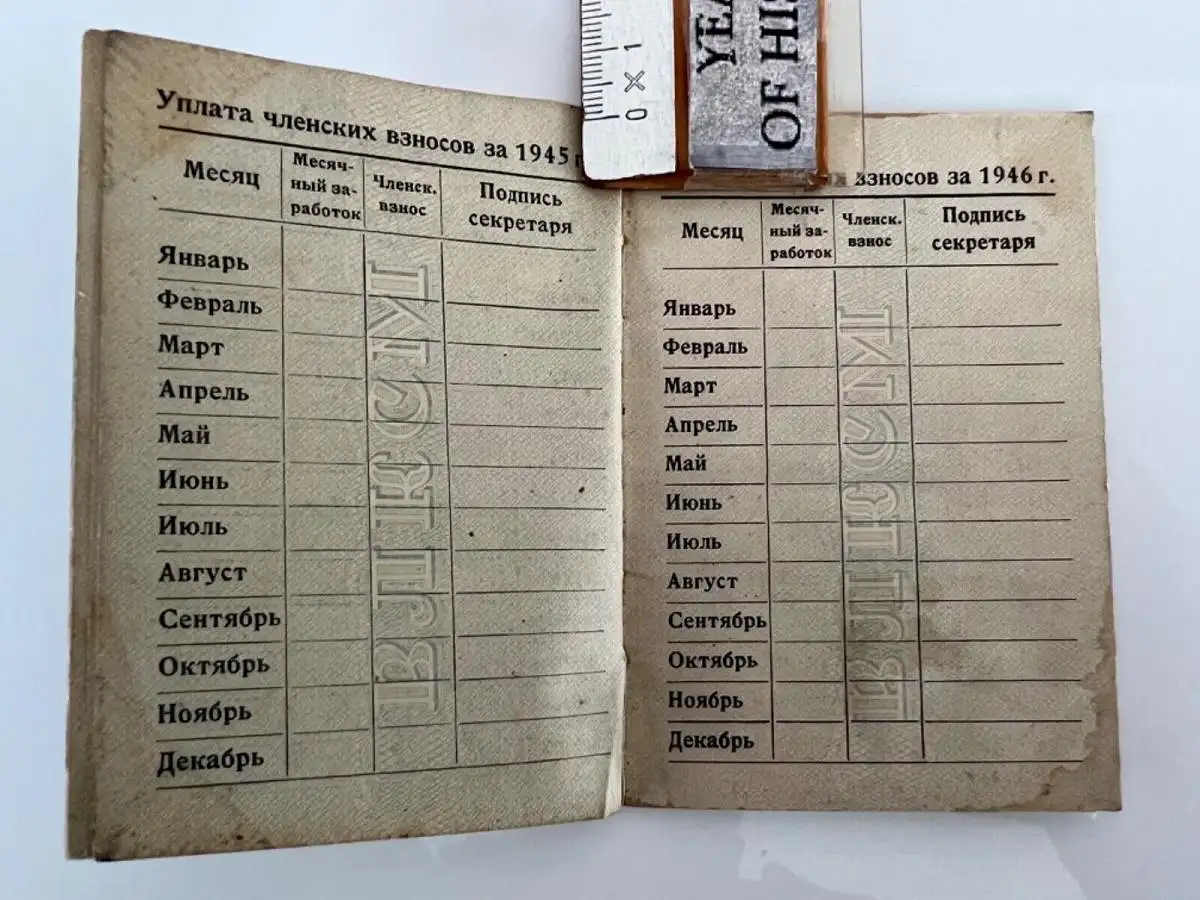 YEA
OF HIS
0 X 1
Уплата членских взносов за 1945 г.
Месяц
Месяч-
ный за-
работок
Членск.
взнос
Подпись
секретаря
Январь
Февраль
Март
Апрель
Май
Июнь
Июль
Август
Сентябрь
Октябрь
Ноябрь
Декабрь
ВЛКСМ
взносов за 1946 г.
Месяц
Месяч-
ный за-
работок
Членск.
взнос
Подпись
секретаря
Январь
Февраль
Март
Апрель
Май
Июнь
Июль
Август
Сентябрь
Октябрь
Ноябрь
Декабрь
ВЛКСМ